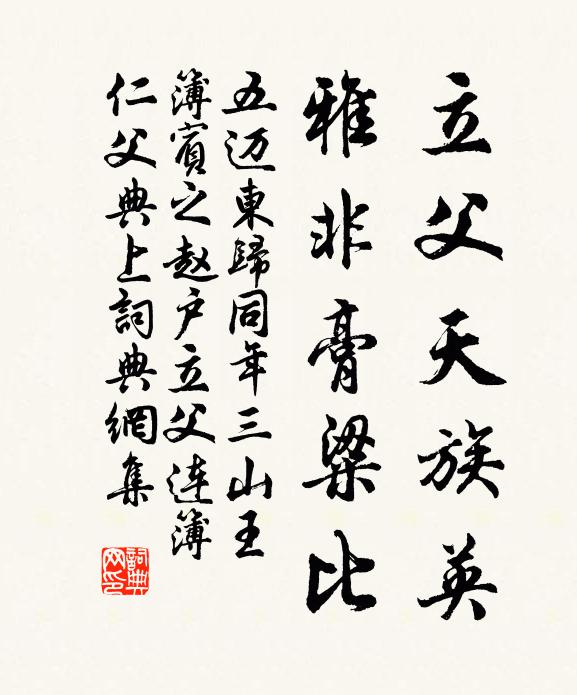 立父天族英
雅非膏粱比
五迈東歸同年三山王
簿賓之赵户立父連簿
仁父典上詞典網集
詞典网印